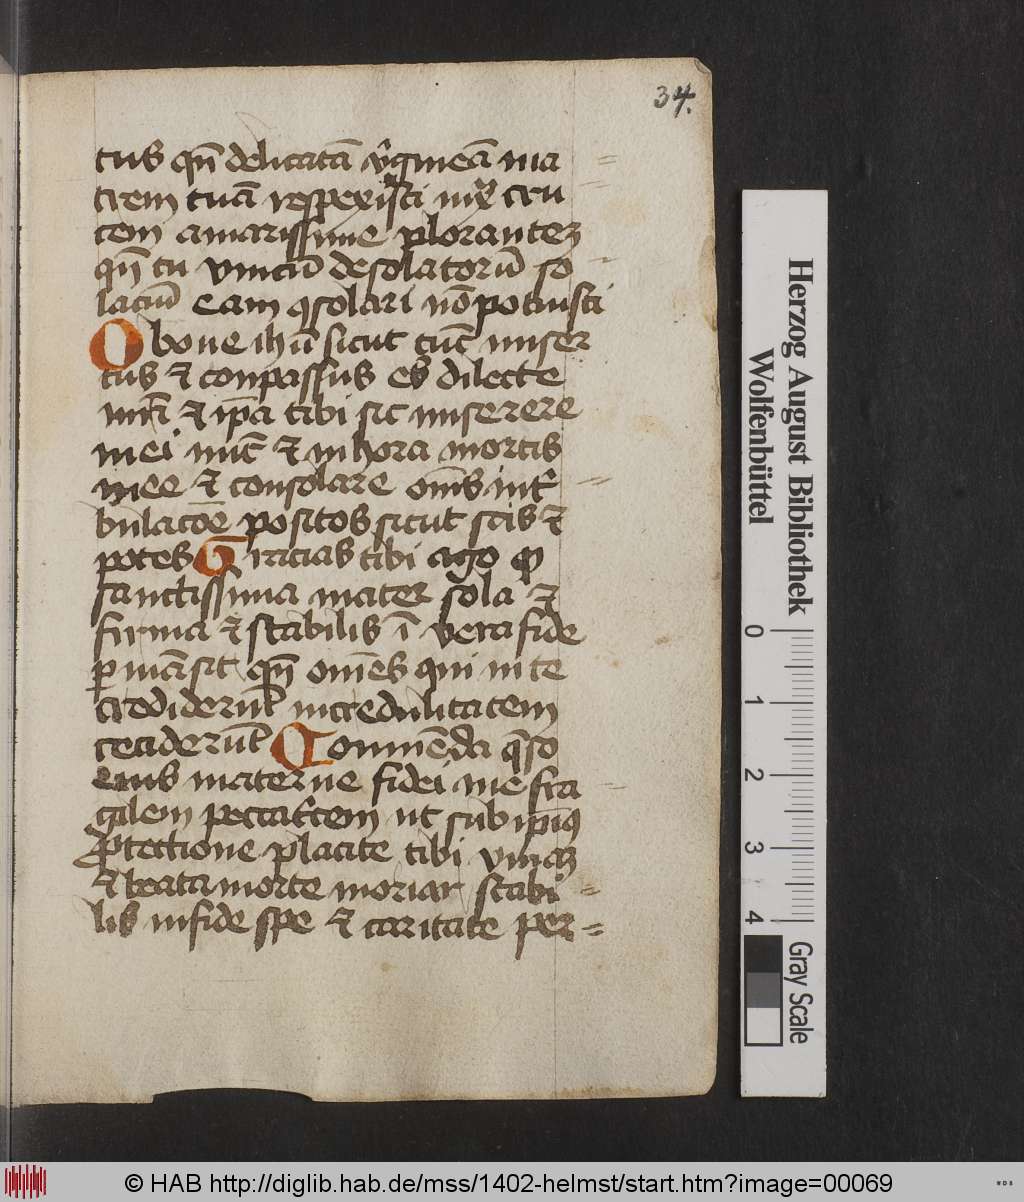 34.
tus qn̄ delicatā v̓gineā ma
trem tuā respexisti iux̄ cru
cem amarissime plorantez
qn̄ tu vnicū desolatorū so
laciū eam ꝯsolari nō potuisti
O bone ihū sicut tūc miser
tus ⁊ conpassus es dilecte
mr̄i ⁊ ip̄a tibi sic miserere
mei nūc ⁊ in hora mortis
mee ⁊ consolare om̄s in t̓
bulacōe positos sicut scis ⁊
potes Gracias tibi ago ꝙ
sanctissima mater sola ⁊
firma ⁊ stabilis ī vera fide
ꝑmāsit qn̄ om̄es qui in te
crediderūt incredulitatem
ceciderūt Commēda q̄so
eius materne fidei me fra
gilem peccat̓cem ut sub ip̄iꝰ
ꝓtectione placite tibi viuaz
⁊ beata morte moriar stabi
lis in fide spe ⁊ caritate per
Herzog August Bibliothek
Wolfenbüttel
0 1 2 3 4
Gray Scale
© HAB http://diglib.hab.de/mss/1402-helmst/start.htm?image=00069